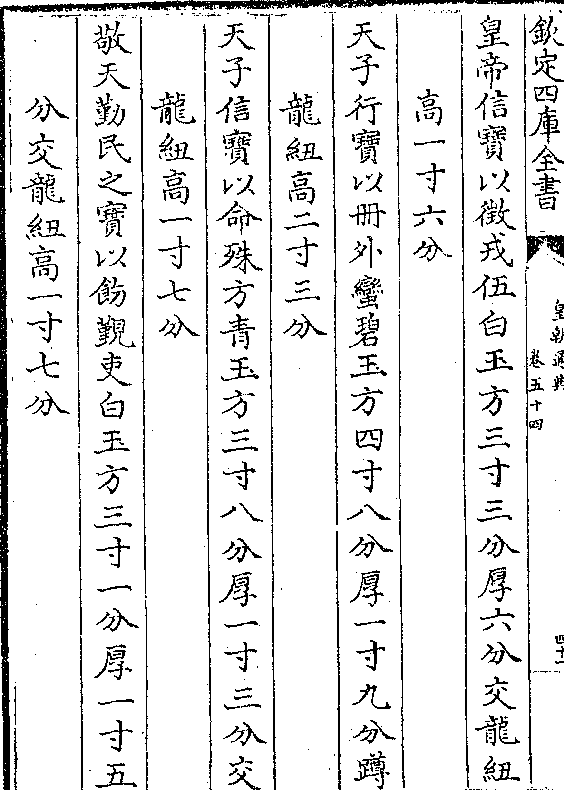 欽定四庫全書
皇朝通典
卷五十四
四十一
皇帝信寶以徵戎伍白玉方三寸三分厚六分交龍紐
高一寸六分
天子行寶以冊外蠻碧玉方四寸八分厚一寸九分蹲
龍紐高二寸三分
天子信寶以命殊方青玉方三寸八分厚一寸三分交
龍紐高一寸七分
敬天勤民之寶以飭覲吏白玉方三寸一分厚一寸五
分交龍紐高一寸七分